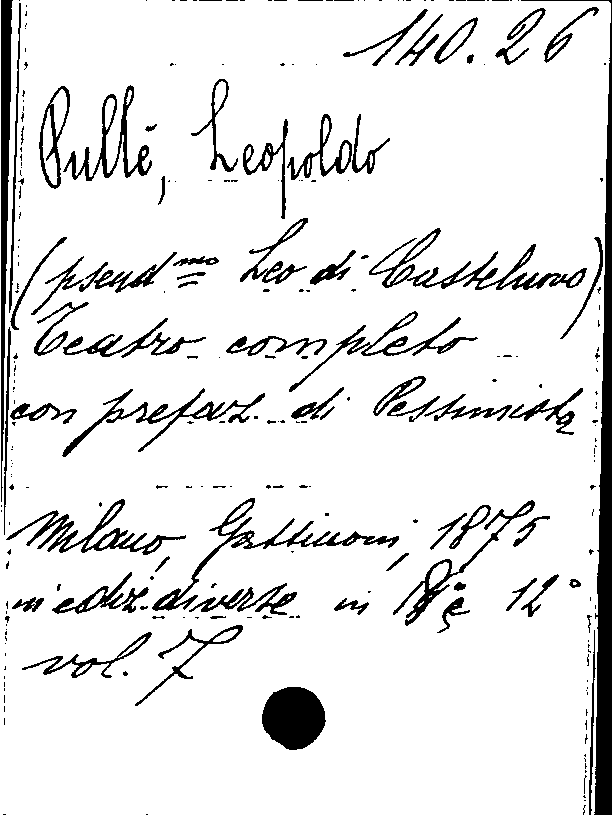 140.26
Pullè, Leopoldo
(pseud.mo Leo di Castelnovo)
Teatro completo
con prefaz. di Pessimista
Milano, Gattinoni, 1875
in ediz. diverse in 8° e 12°
vol. 7